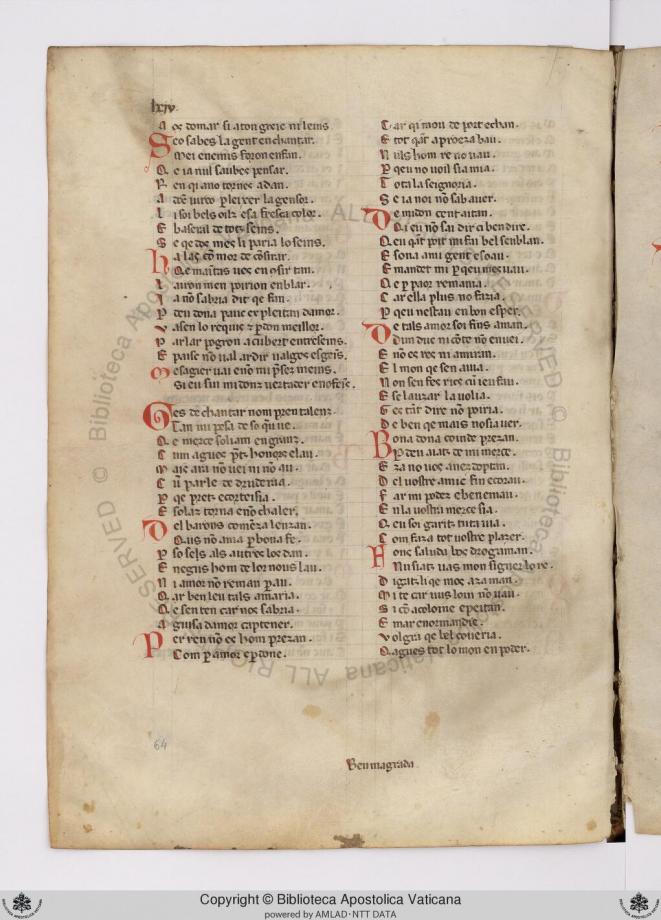 lxiv.
A oc domar si a ton greie ni leins
S eo sabes la gent en chantar.
Mei enemis foron enfan.
Q e ia nul saubes pensar.
F en qi ano tornes adan.
l i soi bels oilz esa fresca color.
E basetal de totz seins.
S e qe doc mes li paria lo seins.
Q e
l auron men poirion enblar.
l a nō sabria dir qe san.
P den dona pauc expleitam damor.
V asen lo requis e pdon meillor.
P arlar pogron a cubert entreseins.
E paise nō ual ardir ualgues es geins.
M esagier uai e no mi pser meins.
Si eu sui mi donz uertader enoseis.
G es de chantar nom pren talenz.
Tan mi pesa de so qu ue.
Q e merce soliam en granz.
C um agues ptz honor e lau.
M as ara nō uei ni nō au.
C ū parle de drudaria.
P qe pretz e cortesia.
E solaz torna eno chaler.
D el barons comēza lenzan.
Q us nō ama p bona fe.
P so sels als autres loc dan.
E negus hom de lor nous lau.
N i amor nō reman p au.
Q ar ben leu tals amaria.
Q e sen ten car noc sabria.
A guisa damor captener.
P er ren nō es hom prezan.
Com p amor e p done.
C ar qi mou de port e chan.
E tot qār a proeza bau.
N uls hom re no uau.
P qeu no uoil sia mia.
T ota la seignoria.
S e ia noi nō sab auer.
D e midon cent aitan.
Qi eu nō sai dir o ben dire.
Q eu qār poir mi fai bel senblan.
E sona ami gent e soau.
E mandet mi p qeu mes uau.
Q e p paor remania.
C ar ella plus no faria.
P qeu nestau en bon esper.
D e tals amor soi fins aman.
Dun duc ni cōte nō enuei.
E nō es res ni amiran.
E l mon qe sen auia.
N on sen fes ries cū ieu fau.
E se lauzar la uolia.
G es tār dire nō poiria.
D e ben qe mais no sia uer.
B ona dona coinde prezan.
P den aiatz de mi merce.
E za no uos anez doptan.
D el uostre amic fin e corau.
F ar mi podez e ben e mau.
E n la uostra merce sia.
Q eu soi garitz tuta uia.
C om faza tot uostre plazer.
F onc salud a loc drogaman.
Nusiatz uas mon signer lo re.
D igatz li qe moc aza man.
M i te car uus loin nō uau.
S i cō a colorne e peitan.
E mar e normandie.
V olgra qe lel coueria.
Q agues tot lo mon en poder.
64
Ben magrada.
ALL RIGHTS RESERVED © Biblioteca Apostolica Vaticana
Copyright © Biblioteca Apostolica Vaticana
powered by AMLAD·NTT DATA